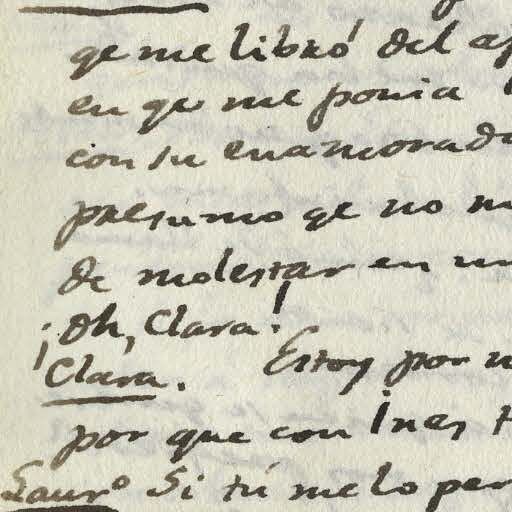 qe me libró del
en qe me ponia
con su enamorad
presumo qe no
de molestar en un
¡Oh, Clara!
Clara. Estoy por
por que con Ines
Laurº Si tú me lo per